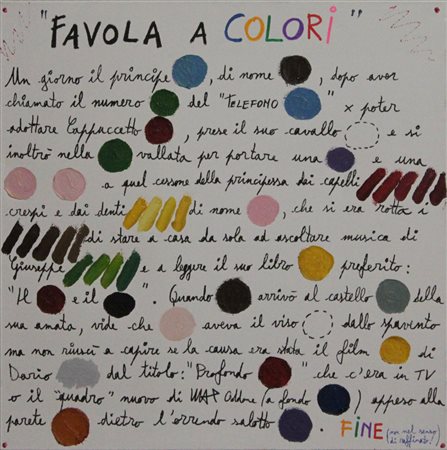 "FAVOLA A COLORI"
Un giorno il principe , di nome , dopo aver
chiamato il numero del "TELEFONO " x poter
adottare Cappuccetto , prese il suo cavallo e si
inoltrò nella vallata per portare una e una
a quel cessone della principessa dai capelli
crespi e dai denti di nome , che si era rotta i
di stare a casa da sola ad ascoltare musica di
Giuseppe e a leggere il suo libro preferito:
"Il e il ". Quando arrivò al castello della
sua amata, vide che aveva il viso dallo spavento
ma non riuscì a capire se la causa era stata il film di
Dario dal titolo: "Profondo " che c'era in TV
o il "quadro" nuovo di (a fondo ) appeso alla
parete dietro l'orrendo salotto .
FINE (ma nel senso di raffinato!)